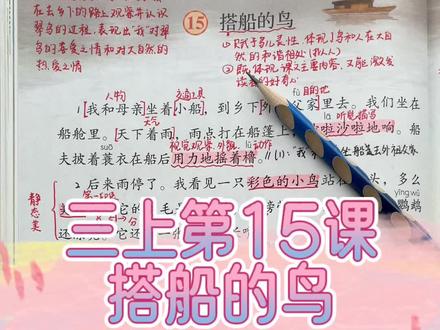 在去乡下的路上观察并认识
翠鸟的过程,表现出"我"对翠
鸟的喜爱之情和对大自然的
热爱之情
15 搭船的鸟
①赋予鸟儿灵性,体现了鸟和人在大自
然的和谐相处(拟人)
课文主要内容,又能激发
读者的好奇心
人物 交通工具 目的地
1 我和母亲坐着小船,到乡下外 家里去。我们坐在
天气 听觉描写
船舱里。天下着雨,雨点打在船篷上, 啦沙啦地响。船
视觉观察 外貌 动作
suō lǔ
夫披着蓑衣在船后用力地摇着橹。
2 后来雨停了。我看见一只彩色的小鸟站在 头,多么
yīng wǔ
静态美
鹦鹉
三上第15课
搭船的鸟